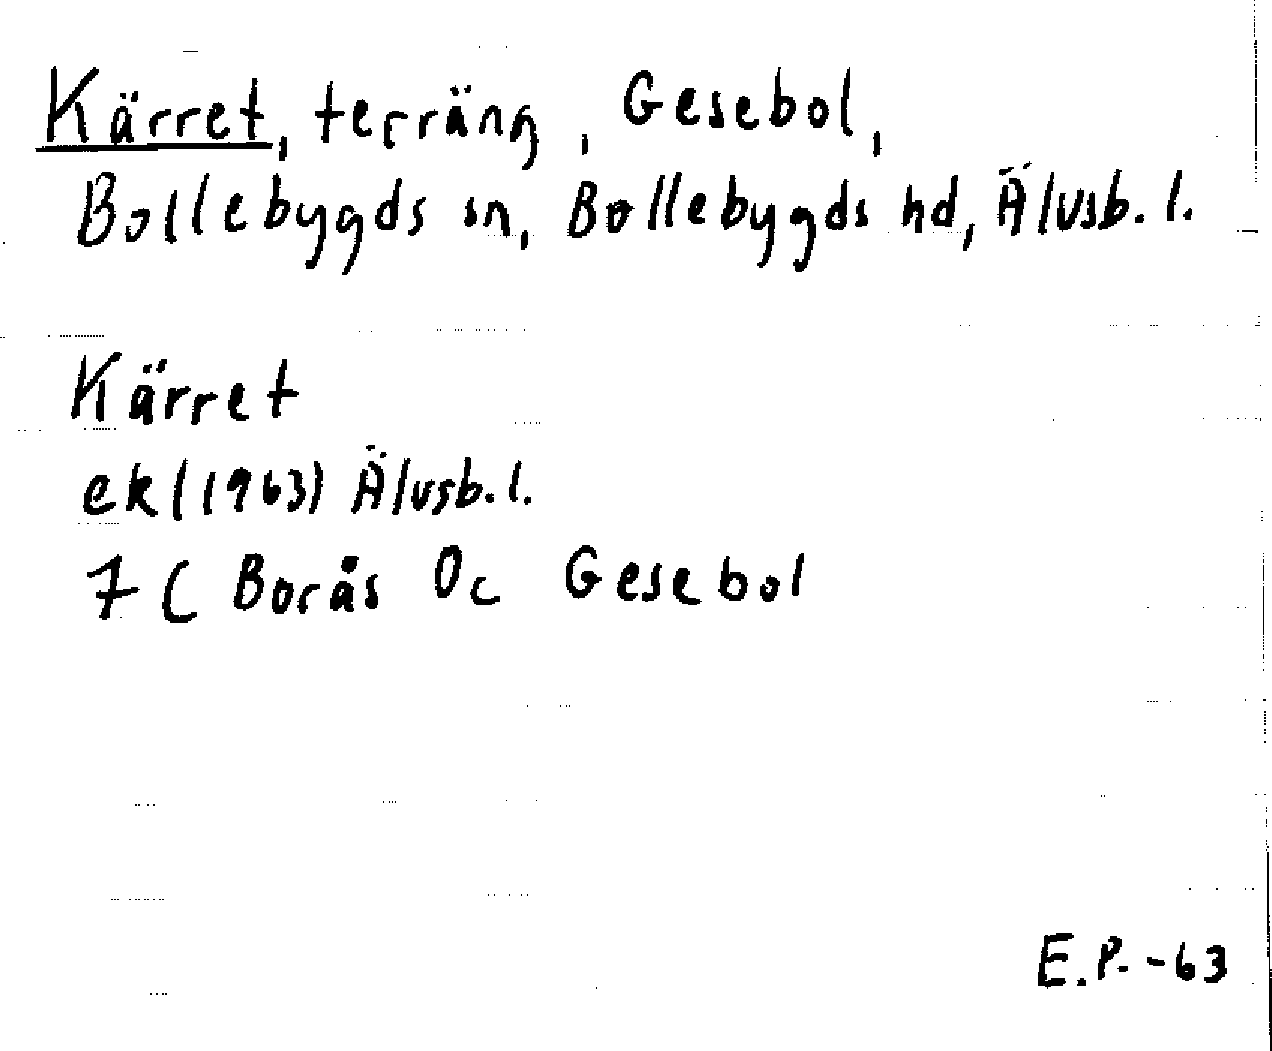 Kärret, terräng, Gesebol,
Bollebygds sn, Bollebygds hd, Älvsb. l.
Kärret
ek (1963) Älvsb. l.
7 C Borås 0c Gesebol
E.P. -63